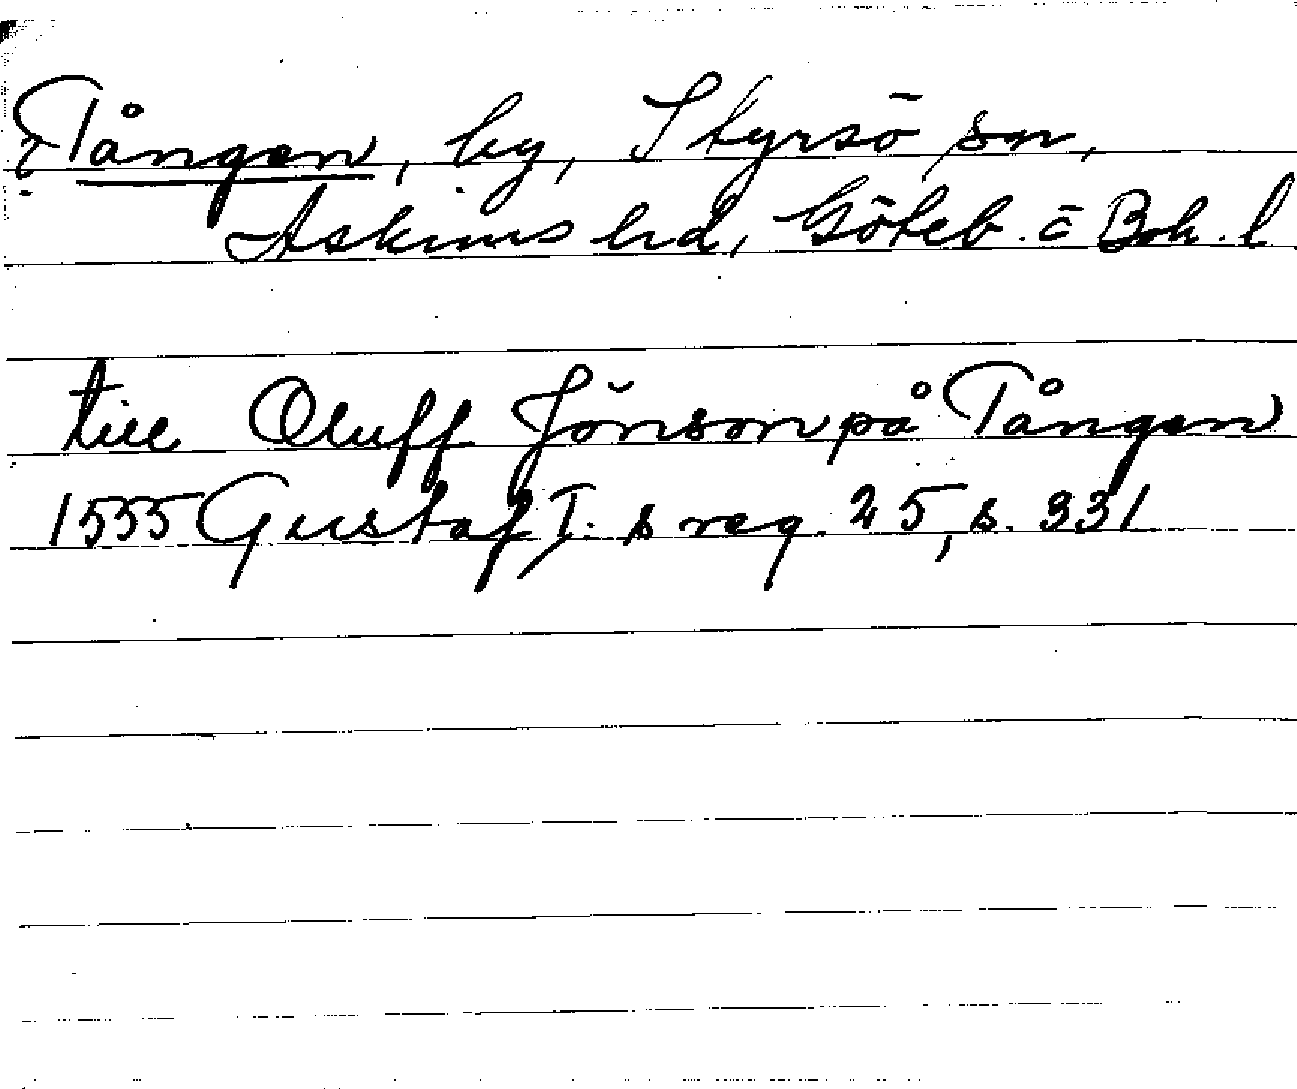 Tången, by, Styrsö sn,
Askims hd, Göteb. o Boh. l
till Oluff Jönson på Tången
1555 Gustaf I. s reg. 25, s. 331